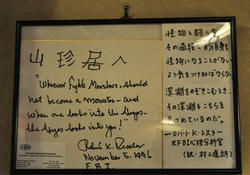 山珍居へ
"Whoever fights Monsters, should
not become a monster - and
when one looks into the Abyss -
the Abyss looks into you!"
Robert K. Ressler
November 5, 1996
F.B.I.
怪物と闘う者は
その過程で自分自身も
怪物になることがない
よう気をつけねばならない
深淵をのぞきこむとき
その深淵もこちらを
つめているのだ。
ロバート・K・レスラー
FBI心理分析官